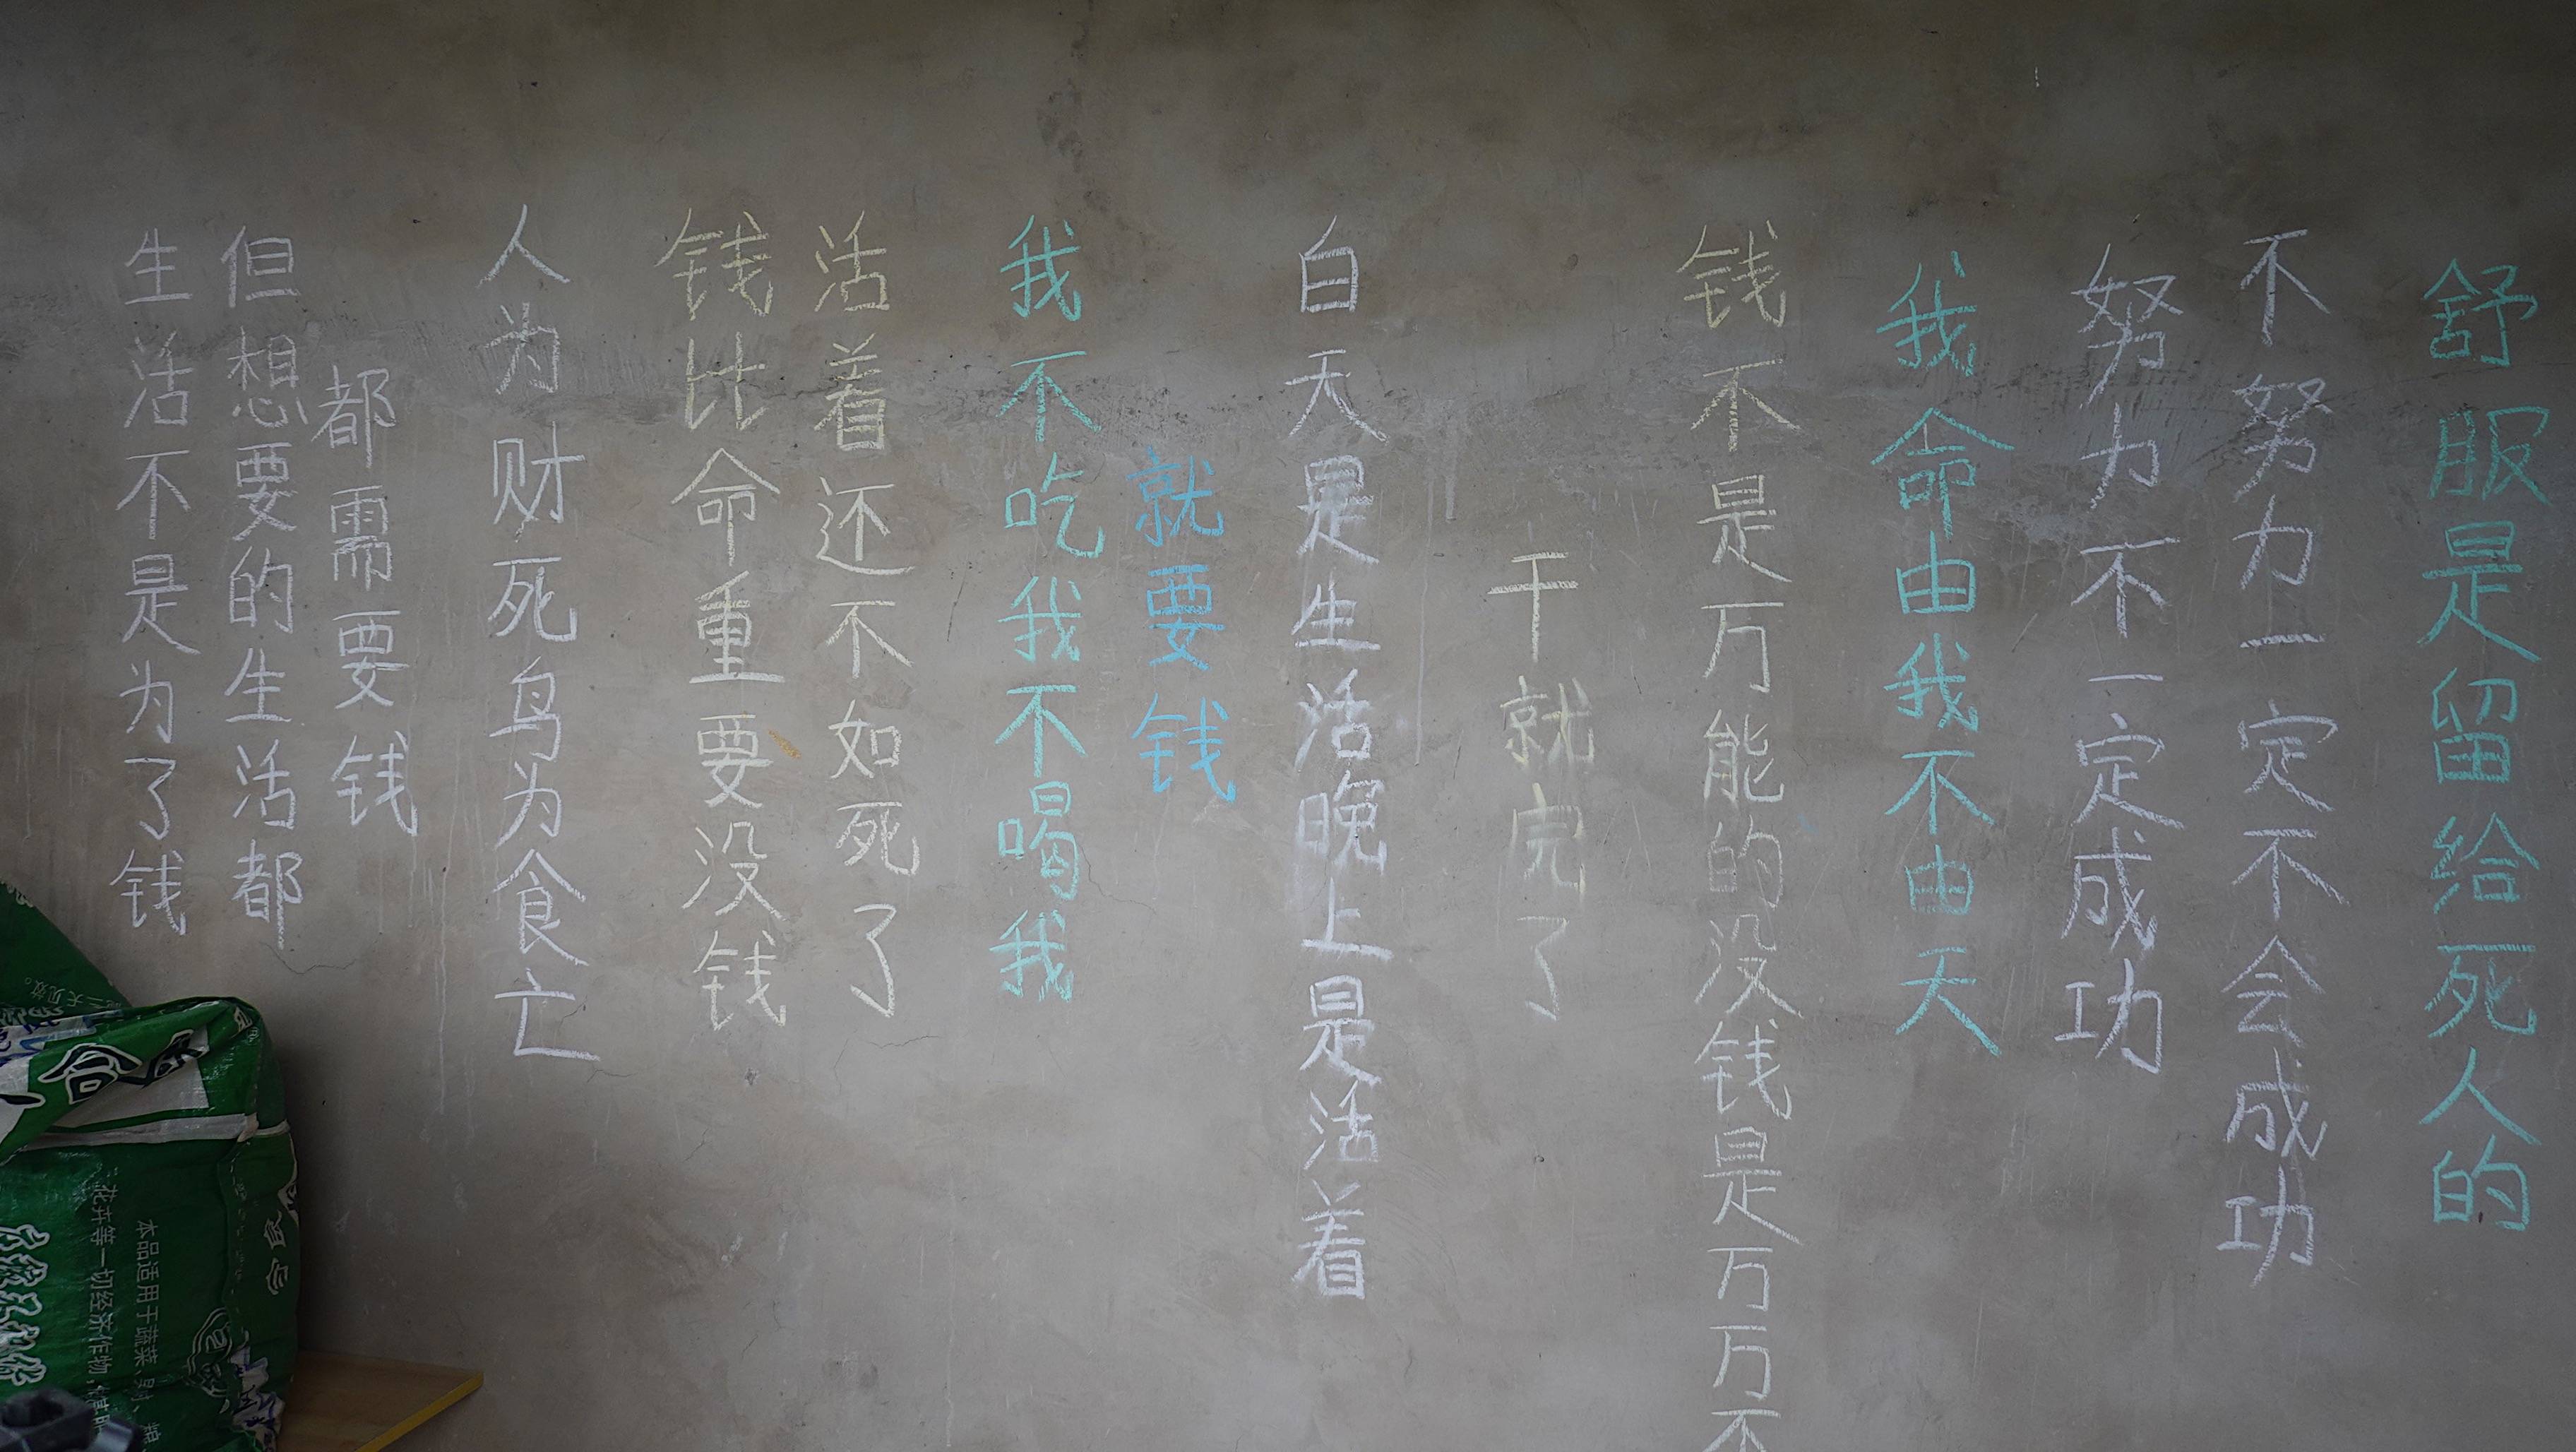 舒服是留给死人的
不努力一定不会成功
努力不一定成功
我命由我不由天
钱不是万能的没钱是万万不
干就完了
白天是生活晚上是活着
就要钱
我不吃我不喝我
活着还不如死了
钱比命重要没钱
人为财死鸟为食亡
都需要钱
但想要的生活都
生活不是为了钱
本品适用于蔬菜
花卉等一切经济作物